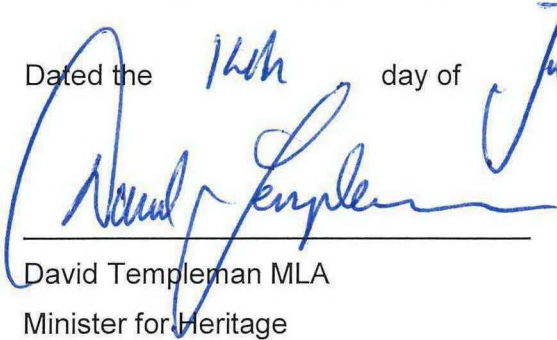 Dated the day of
David Templeman
David Templeman MLA
Minister for Heritage